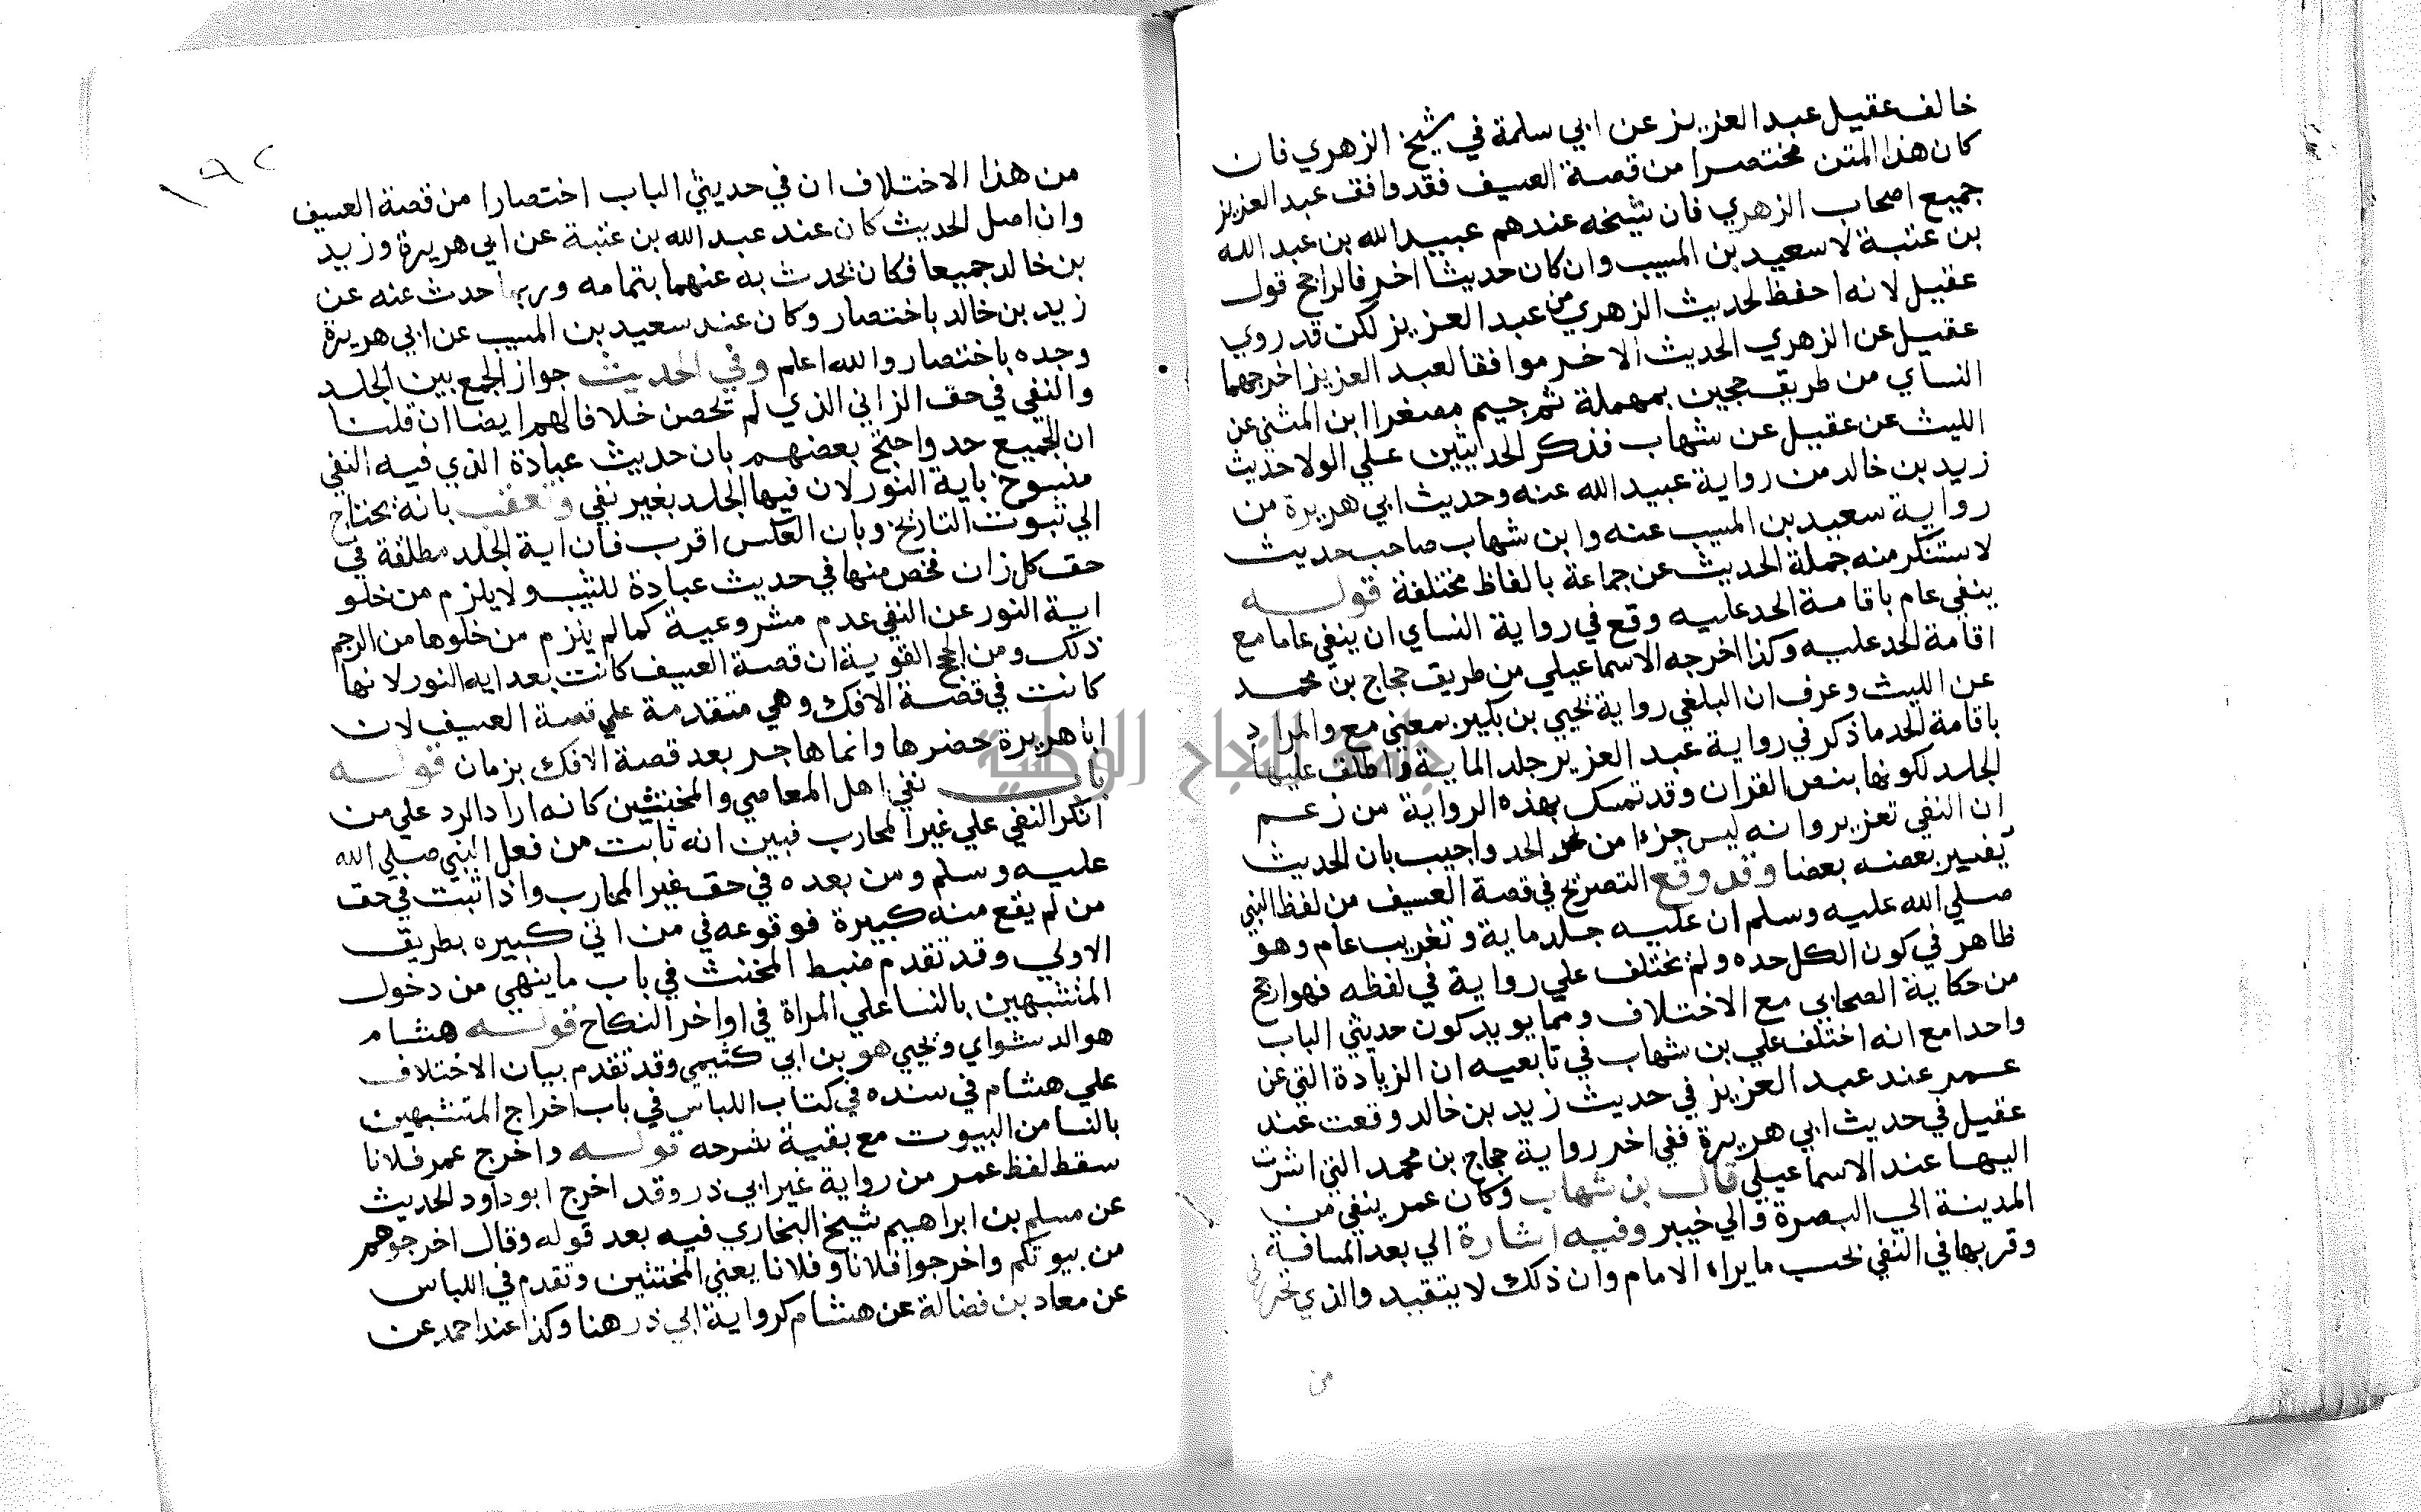 خالف عقيل عبد العزيز عن ابي سلمة في شيخ الزهري فان
كان هذا المتن مختصرا من قصة العسيف فقد وافق عبد العزيز
جميع اصحاب الزهري فان شيخه عندهم عبيد الله بن عبد الله
بن عتبة لا سعيد بن المسيب وان كان حديثا اخر فالراجح قول
عقيل لانه احفظ لحديث الزهري من عبد العزيز لكن قد روي
عقيل عن الزهري الحديث الاخر موافقا لعبد العزيز اخرجهما
النساي من طريق حجين بمهملة ثم جيم مصغرا ابن المثني عن
الليث عن عقيل عن شهاب فذكر الحديثين علي الولا حديث
زيد بن خالد من رواية عبيد الله عنه وحديث ابي هريرة من
رواية سعيد بن المسيب عنه وابن شهاب صاحب حديث
لا ستنكر منه جملة الحديث عن جماعة بالفاظ مختلفة قوله
ينفي عام باقامة الحد عليه وقع في رواية النساي ان ينفي عاما مع
اقامة الحد عليه وكذا اخرجه الاسماعيلي من طريق حجاج بن محمد
عن الليث وعرف ان البلغي رواية يحيي بن بكير بمعني مع والمراد
باقامة الحد ما ذكر في رواية عبد العزيز جلد الماية واطلق عليها
الجلد لكونها بنص القران وقد تمسك بهذه الرواية من زعم
ان النفي تعزير وانه ليس جزءا من الحد واجيب بان الحديث
يفسير بعضه بعضا وقد وقع التصريح في قصة العسيف من لفظ النبي
صلي الله عليه وسلم ان عليه جلد ماية وتغريب عام وهو
ظاهر في كون الكل حده ولم يختلف علي رواية في لفظه فهو ارجح
من حكاية الصحابي مع الاختلاف ومما يويد كون حديثي الباب
واحدا مع انه اختلف علي بن شهاب في تابعيه ان الزيادة التي عن
عمر عند عبد العزيز في حديث زيد بن خالد وقعت عند
عقيل في حديث ابي هريرة ففي اخر رواية حجاج بن محمد التي اشرت
اليها عند الاسماعيلي قال بن شهاب وكان عمر ينفي من
المدينة الي البصرة والي خيبر وفيه اشارة الي بعد المسافة
وقربها في النفي بحسب ما يراه الامام وان ذلك لا يتقيد والذي تحرر لي
من
١٩٢
من هذا الاختلاف ان في حديثي الباب اختصارا من قصة العسيف
وان اصل الحديث كان عند عبد الله بن عتبة عن ابي هريرة وزيد
بن خالد جميعا فكان يحدث به عنهما بتمامه وربما حدث عنه عن
زيد بن خالد باختصار وكان عند سعيد بن المسيب عن ابي هريرة
وحده باختصار والله اعلم وفي الحديث جواز الجمع بين الجلد
والنفي في حق الزاني الذي لم يحصن خلافا لهم ايضا ان قلنا
ان الجميع حد واحتج بعضهم بان حديث عبادة الذي فيه النفي
منسوخ باية النور لان فيها الجلد بغير نفي وتعقب بانه يحتاج
الي ثبوت التاريخ وبان العكس اقرب فان اية الجلد مطلقة في
حق كل زان فخص منها في حديث عبادة للثيب ولا يلزم من خلو
اية النور عن النفي عدم مشروعية كما لم يلزم من خلوها من الرجم
ذلك ومن الحجج القوية ان قصة العسيف كانت بعد ايه النور لانها
كانت في قصة الافك وهي متقدمة علي قصة العسيف لان
ابا هريرة حضرها وانما هاجر بعد قصة الافك بزمان قوله
باب نفي اهل المعاصي والمخنثين كانه اراد الرد علي من
انكر النفي علي غير المحارب فبين انه ثابت من فعل النبي صلي الله
عليه وسلم ومن بعده في حق غير المحارب واذا ثبت في حق
من لم يقع منه كبيرة فوقوعه في من اتي كبيره بطريق
الاولي وقد تقدم ضبط المخنث في باب ما ينهي من دخول
المتشبهين بالنسا علي المراة في اواخر النكاح قوله هشام
هو الدستواي ويحيي هو بن ابي كثيمي وقد تقدم بيان الاختلاف
علي هشام في سنده في كتاب اللباس في باب اخراج المتشبهين
بالنسا من البيوت مع بقية شرحه قوله واخرج عمر فلانا
سقط لفظ عمر من رواية غير ابي ذر وقد اخرج ابو داود الحديث
عن مسلم بن ابراهيم شيخ البخاري فيه بعد قوله وقال اخرجوهم
من بيوتكم واخرجوا فلانا وفلانا يعني المخنثين وتقدم في اللباس
عن معاد بن فضالة عن هشام كرواية ابي ذر هنا وكذا عند احمد عن
جامعة النجاح الوطنية